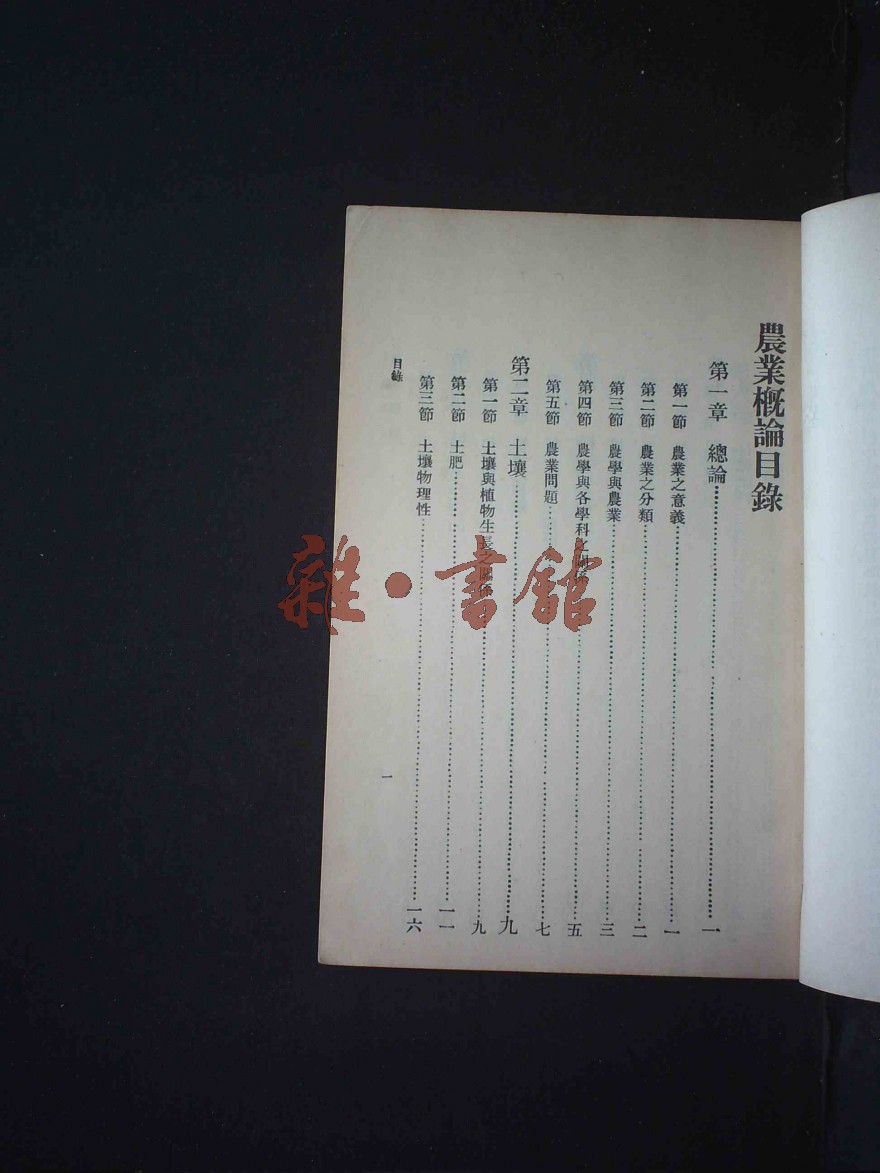 農業概論目錄
第一章　總論……一
第一節　農業之意義……一
第二節　農業之分類……二
第三節　農學與農業……三
第四節　農學與各學科之關係……五
第五節　農業問題……七
第二章　土壤……九
第一節　土壤與植物生長之關係……九
第二節　土肥……一一
第三節　土壤物理性……一六
目錄
一
雜·書館